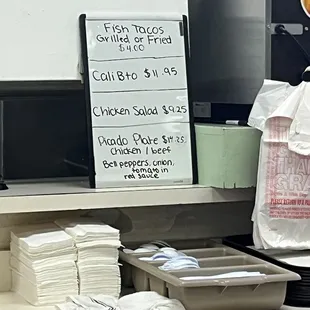 Fish Tacos
Grilled or Fried
$4.00
Cali Bto $11.95
Chicken Salad $9.25
Picado Plate $14.25
Chicken / beef
Bell peppers, onion,
tomato in
red sauce